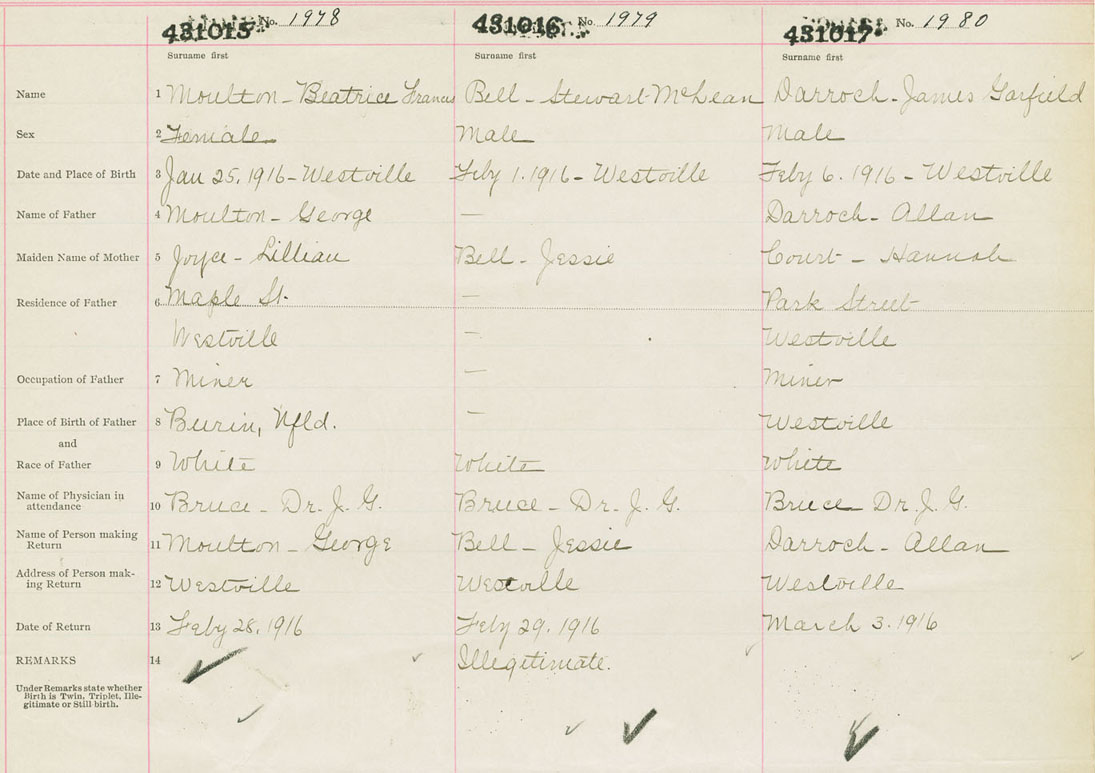 431015 No. 1978 431016 No. 1979 431017 No. 1980
Surname first Surname first Surname first
Name 1 Moulton - Beatrice Francis Bell - Stewart McLean Darroch - James Garfield
Sex 2 Female Male Male
Date and Place of Birth 3 Jan 25, 1916 - Westville Feby 1. 1916 - Westville Feby 6. 1916 - Westville
Name of Father 4 Moulton - George — Darroch - Allan
Maiden Name of Mother 5 Joyce - Lillian Bell - Jessie Court - Hannah
Residence of Father 6 Maple St. — Park Street
Westville — Westville
Occupation of Father 7 Miner — Miner
Place of Birth of Father 8 Burin, Nfld. — Westville
and
Race of Father 9 White White White
Name of Physician in
attendance 10 Bruce - Dr. J. G. Bruce - Dr. J. G. Bruce Dr. J. G.
Name of Person making
Return 11 Moulton - George Bell - Jessie Darroch - Allan
Address of Person mak-
ing Return 12 Westville Westville Westville
Date of Return 13 Feby 28, 1916 Feby 29, 1916 March 3. 1916
REMARKS 14 Illegitimate.
Under Remarks state whether
Birth is Twin, Triplet, Ille-
gitimate or Still birth.